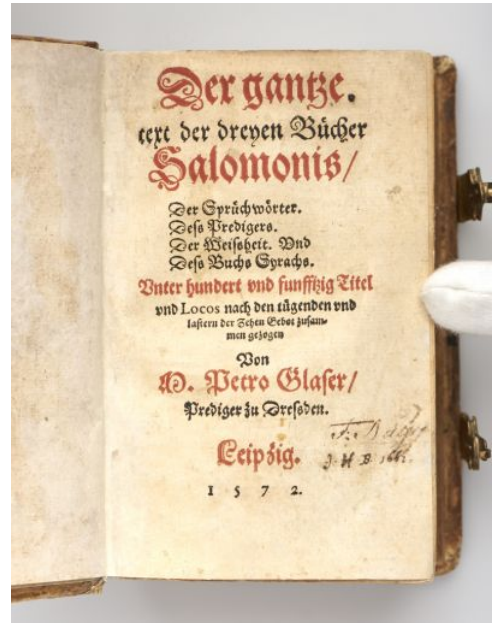 Der gantze.
text der dreyen Bücher
Salomonis/
Der Sprüchwörter.
Deſs Predigers.
Der Weiſsheit. Vnd
Deſs Buchs Syrachs.
Vnter hundert vnd funfftzig Titel
vnd Locos nach den tügenden vnd
laſtern der Zehen Gebot zuſam-
men gezogen
Von
M. Petro Glaſer/
Prediger zu Dreſsden.
Leipzig.
1572.
J. H. B.